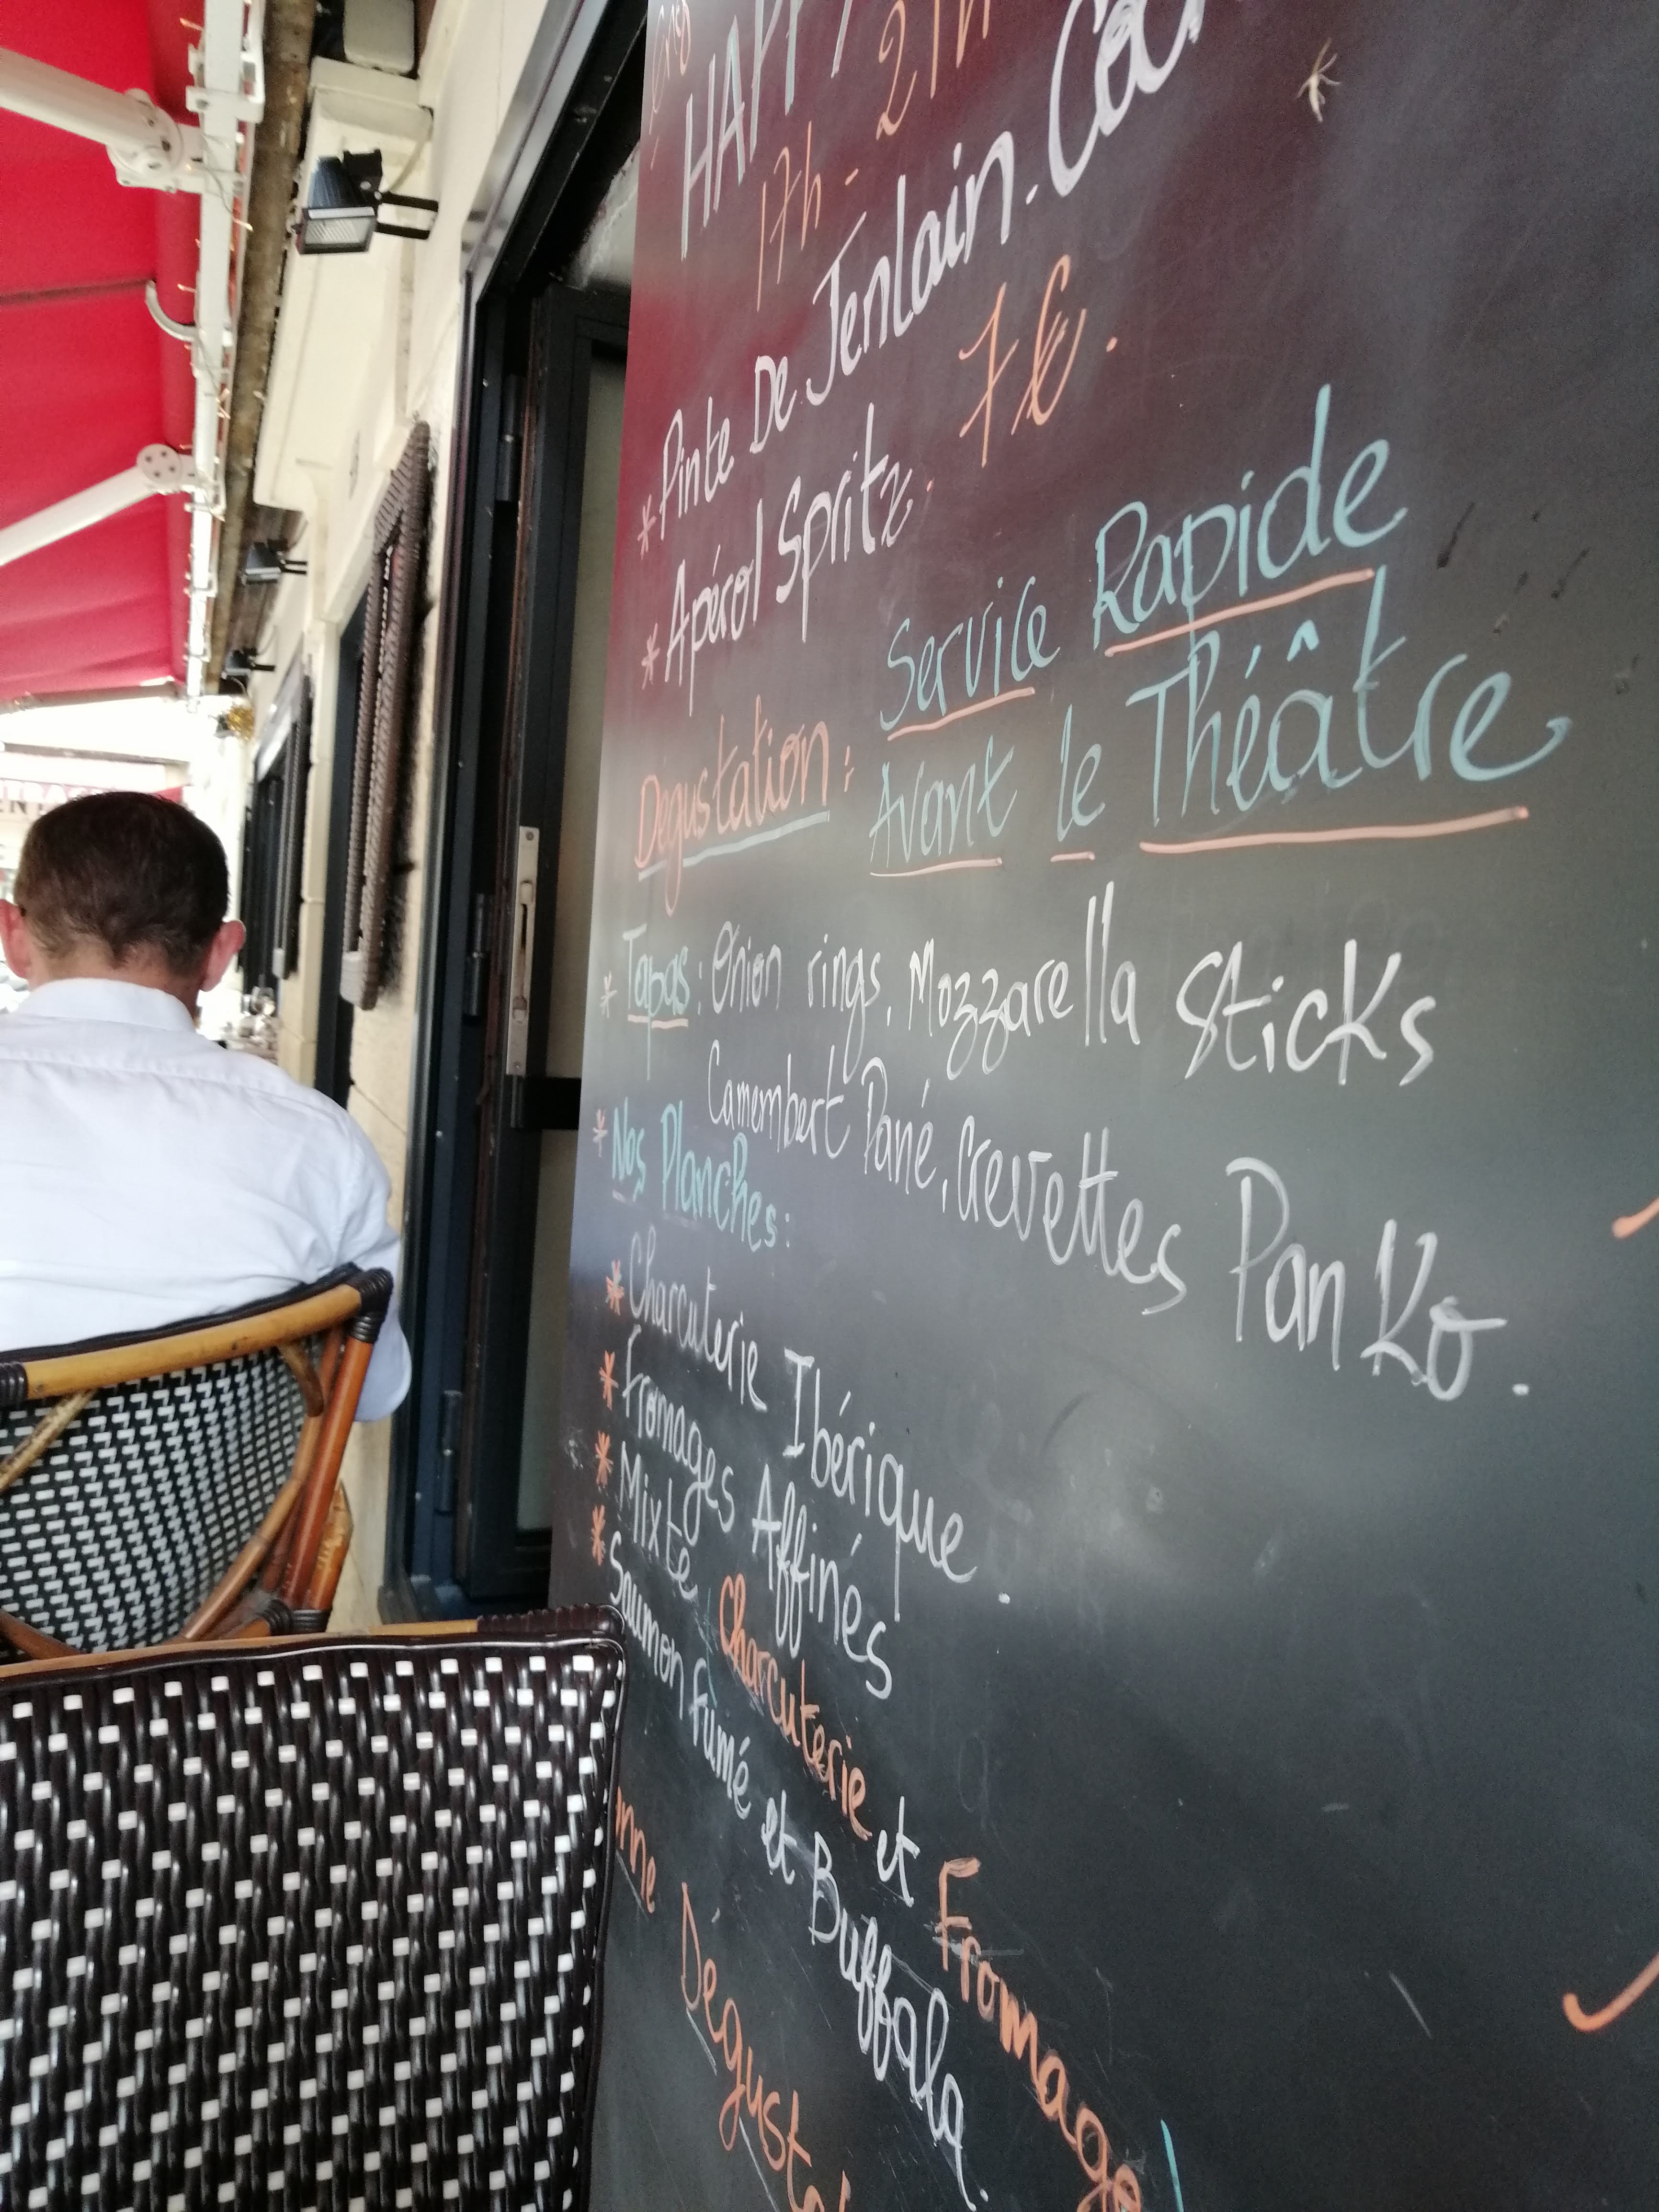 HAPPY
17h - 21h
* Pinte De Jenlain.
* Apérol Spritz. 7€.
Dégustation: Service Rapide
Avant le Théâtre
* Tapas: Onion rings, Mozzarella Sticks
Camembert Pané, Crevettes PanKo.
* Nos Planches:
* Charcuterie Ibérique.
* Fromages Affinés
* Mixte Charcuterie et Fromage
* Saumon fûmé et Buffala.